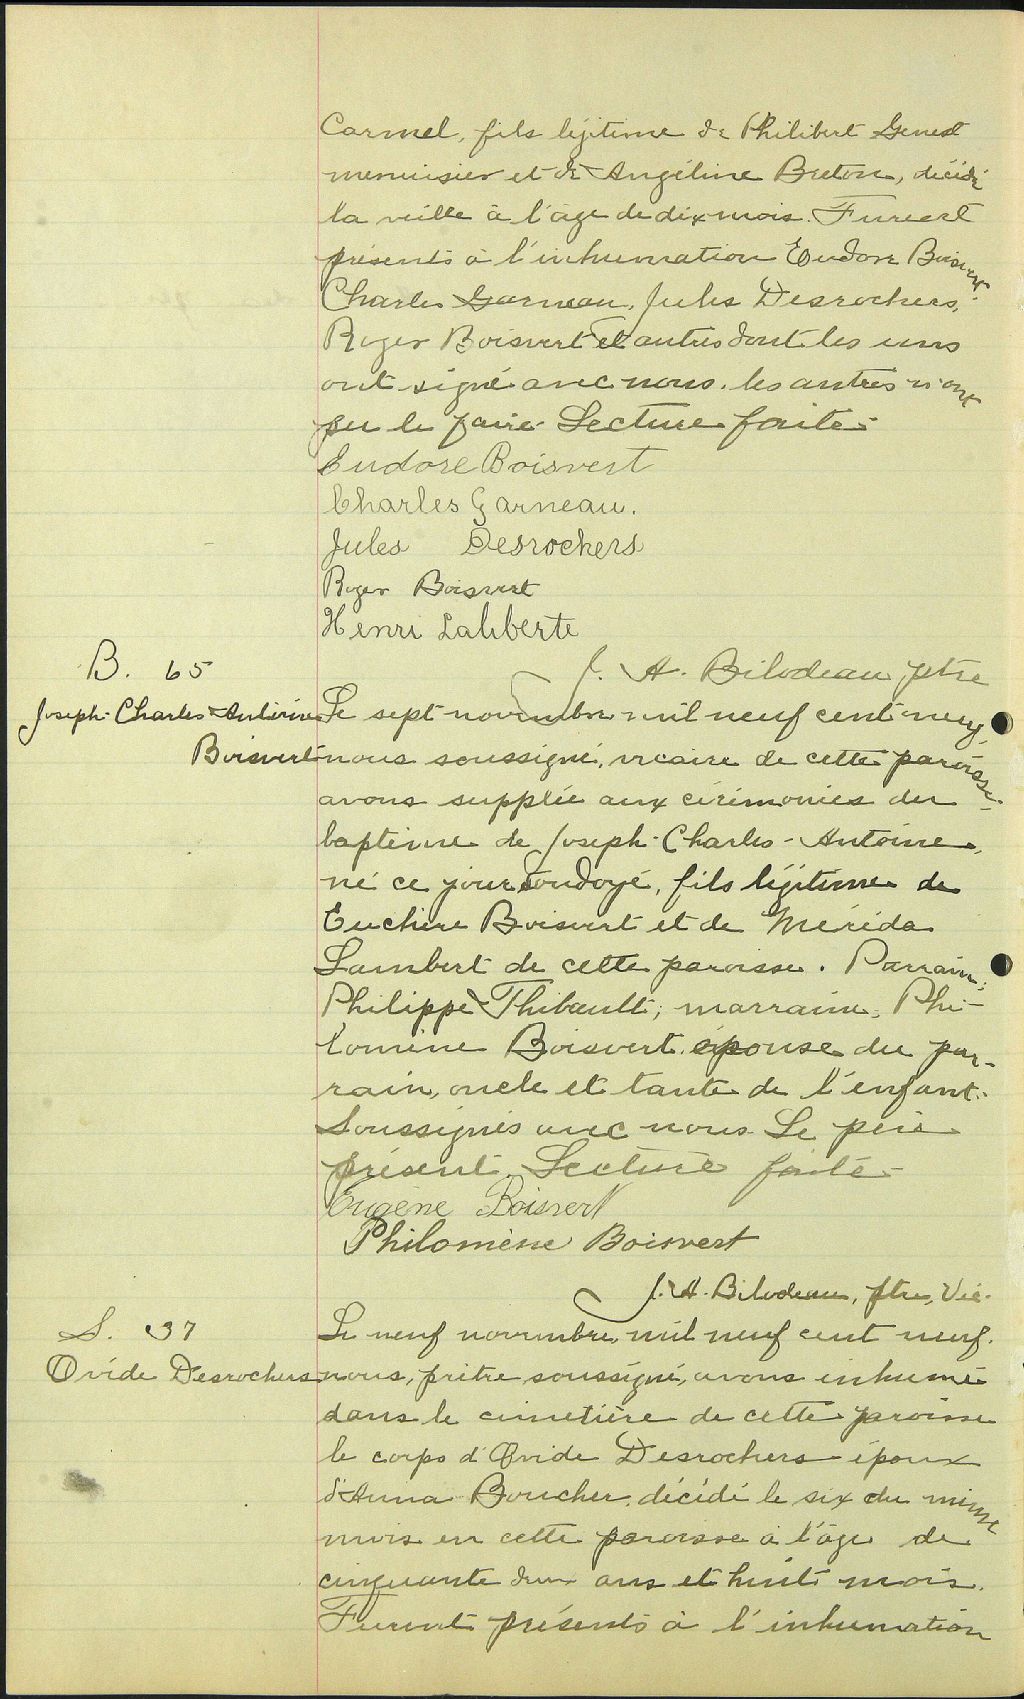 Carmel, fils légitime de Philibert Genest
menuisier et de Angéline Breton, décédé
la veille à l'âge de dix mois. Furent
présents à l'inhumation Eudore Boisvert
Charles Garneau, Jules Desrochers,
Roger Boisvert et autres dont les uns
ont signé avec nous, les autres n'ont
pu le faire. Lecture faite.
Eudore Boisvert
Charles Garneau.
Jules Desrochers
Roger Boisvert
Henri Laliberte
J. A. Bilodeau, ptre
B. 65
Joseph-Charles-Antoine
Boisvert
Le sept novembre mil neuf cent neuf,
nous soussigné, vicaire de cette paroisse,
avons supplée aux cérémonies du
baptême de Joseph-Charles-Antoine,
né ce jour ondoyé, fils légitime de
Euchère Boisvert et de Mérida
Lambert de cette paroisse. Parrain,
Philippe Thibault; marraine, Phi-
lomène Boisvert épouse du par-
rain, oncle et tante de l'enfant.
Soussignés avec nous. Le père
présent. Lecture faite.
Eugène Boisvert
Philomène Boisvert
J. A. Bilodeau, ptre, Vic.
S. 37
Ovide Desrochers
Le neuf novembre, mil neuf cent neuf,
nous, prêtre soussigné, avons inhumé
dans le cimetière de cette paroisse
le corps d'Ovide Desrochers époux
d'Anna Boucher, décédé le six du même
mois en cette paroisse à l'âge de
cinquante deux ans et huit mois.
Furent présents à l'inhumation